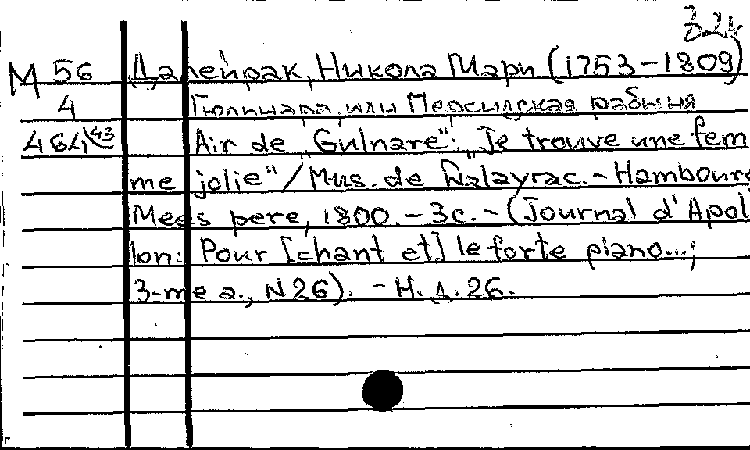 324
М 56 Далейрак, Никола Мари (1753-1809)
4 Гюльнара, или Персидская рабыня
464/43 Air de „Gulnare": „Je trouve une fem
me jolie" / Mus. de Dalayrac. - Hambourg
Mees pere, 1800. - 3c. - (Journal d'Apol
lon: Pour [chant et] le forte piano...;
3-me a., N 26). - Н. д. 26.